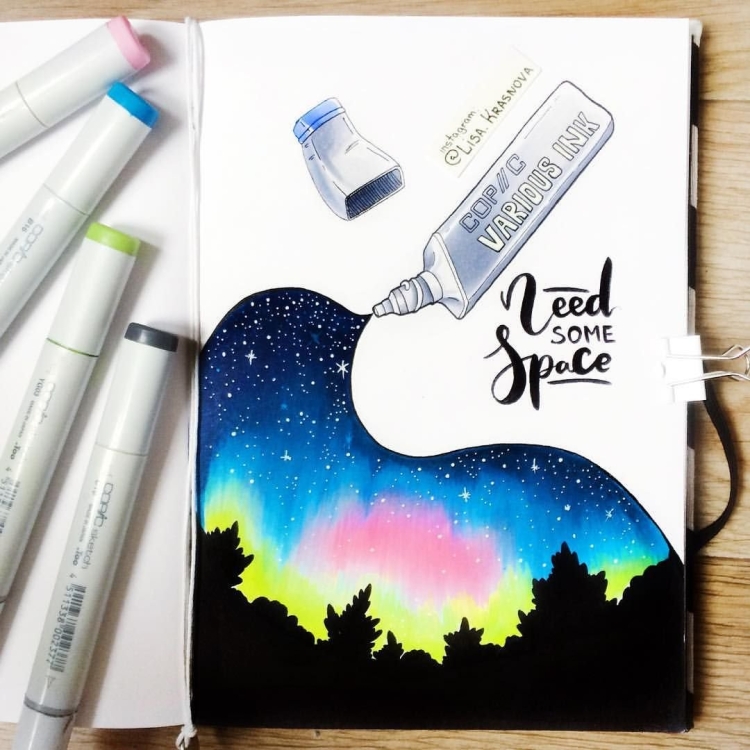 instagram
@LISA.KRASNOVA
COP//C
VARIOUS INK
Need
SOME
Space
copic sketch
.Too
4 511338 007